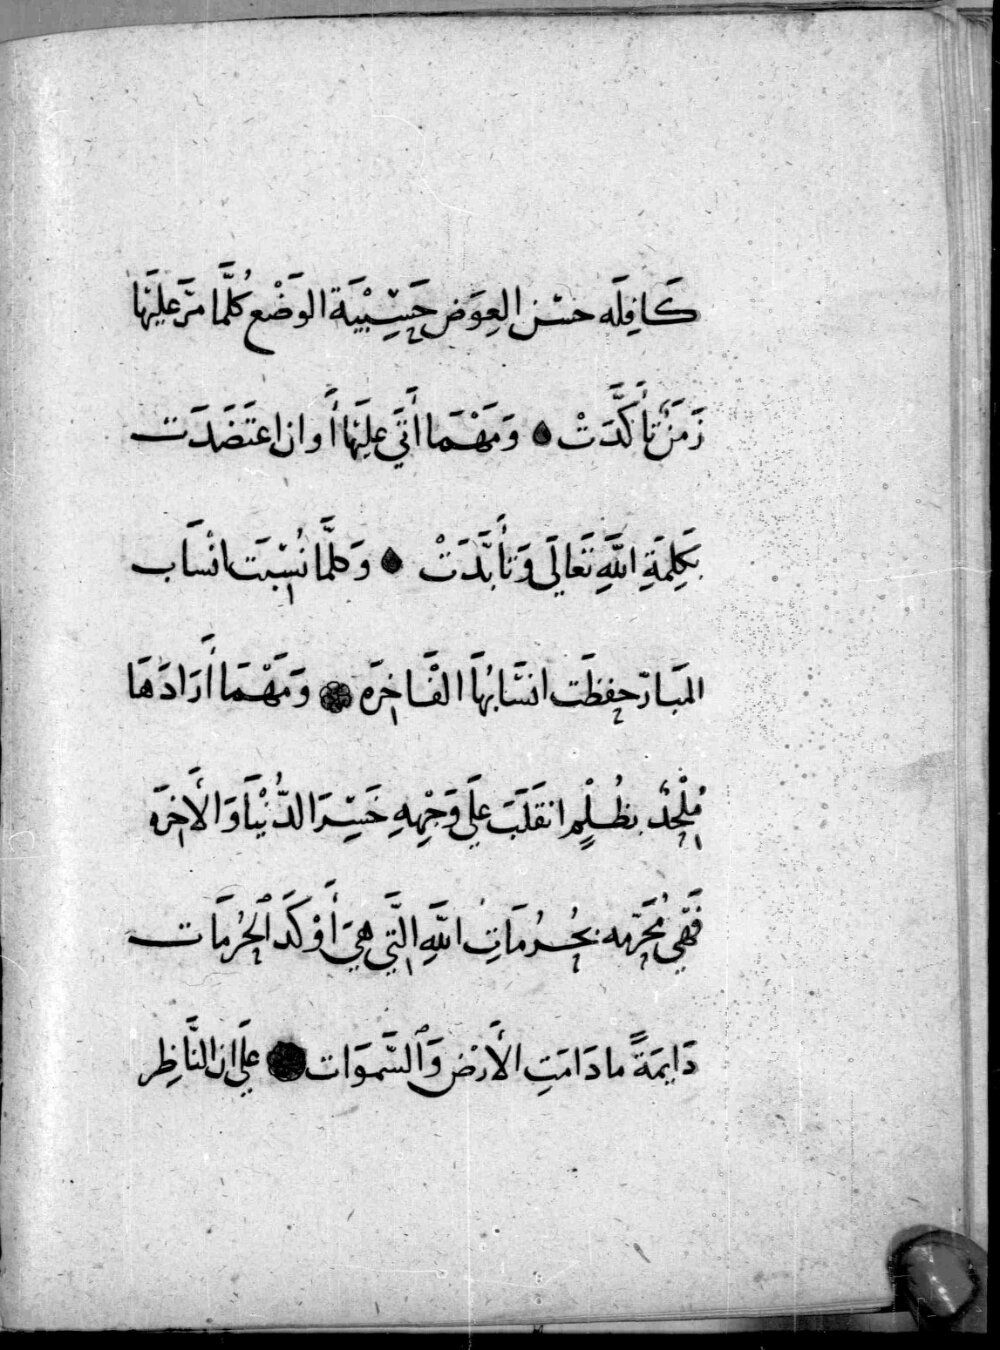 كَافِلَه حسْن العِوَض حَسِيْبَة الوَضْع كُلَّمَا مرَّ عليَها
زَمَنٌ تأَكَّدَتْ وَمَهْمَا أَتَى عليَها أَوان اعتَضَدَت
بكَلِمَةِ اللَّهِ تَعَالَى وَتأَبَّدَتْ وَكلَّمَا نُسْبَت انْسَاب
المَبَارّ حفِظَت انسَابُهَا الفَاخِرَه وَمَهْمَا أَرَادَهَا
مُلْحِدٌ بظُلْمٍ انقَلَبَ عَلَى وَجْهِهِ خَسِرَ الدُّنْيَا وَالأَخِرَه
فَهْيَ مُحَرَّمه بحُرُمَاتِ اللَّهِ الَّتِي هِيَ أَوْكَدَ الحُرُمَات
دَايمَةً ما دَامَتِ الأَرْض وَالسَّموَات عَلَى ان النَّاظِر